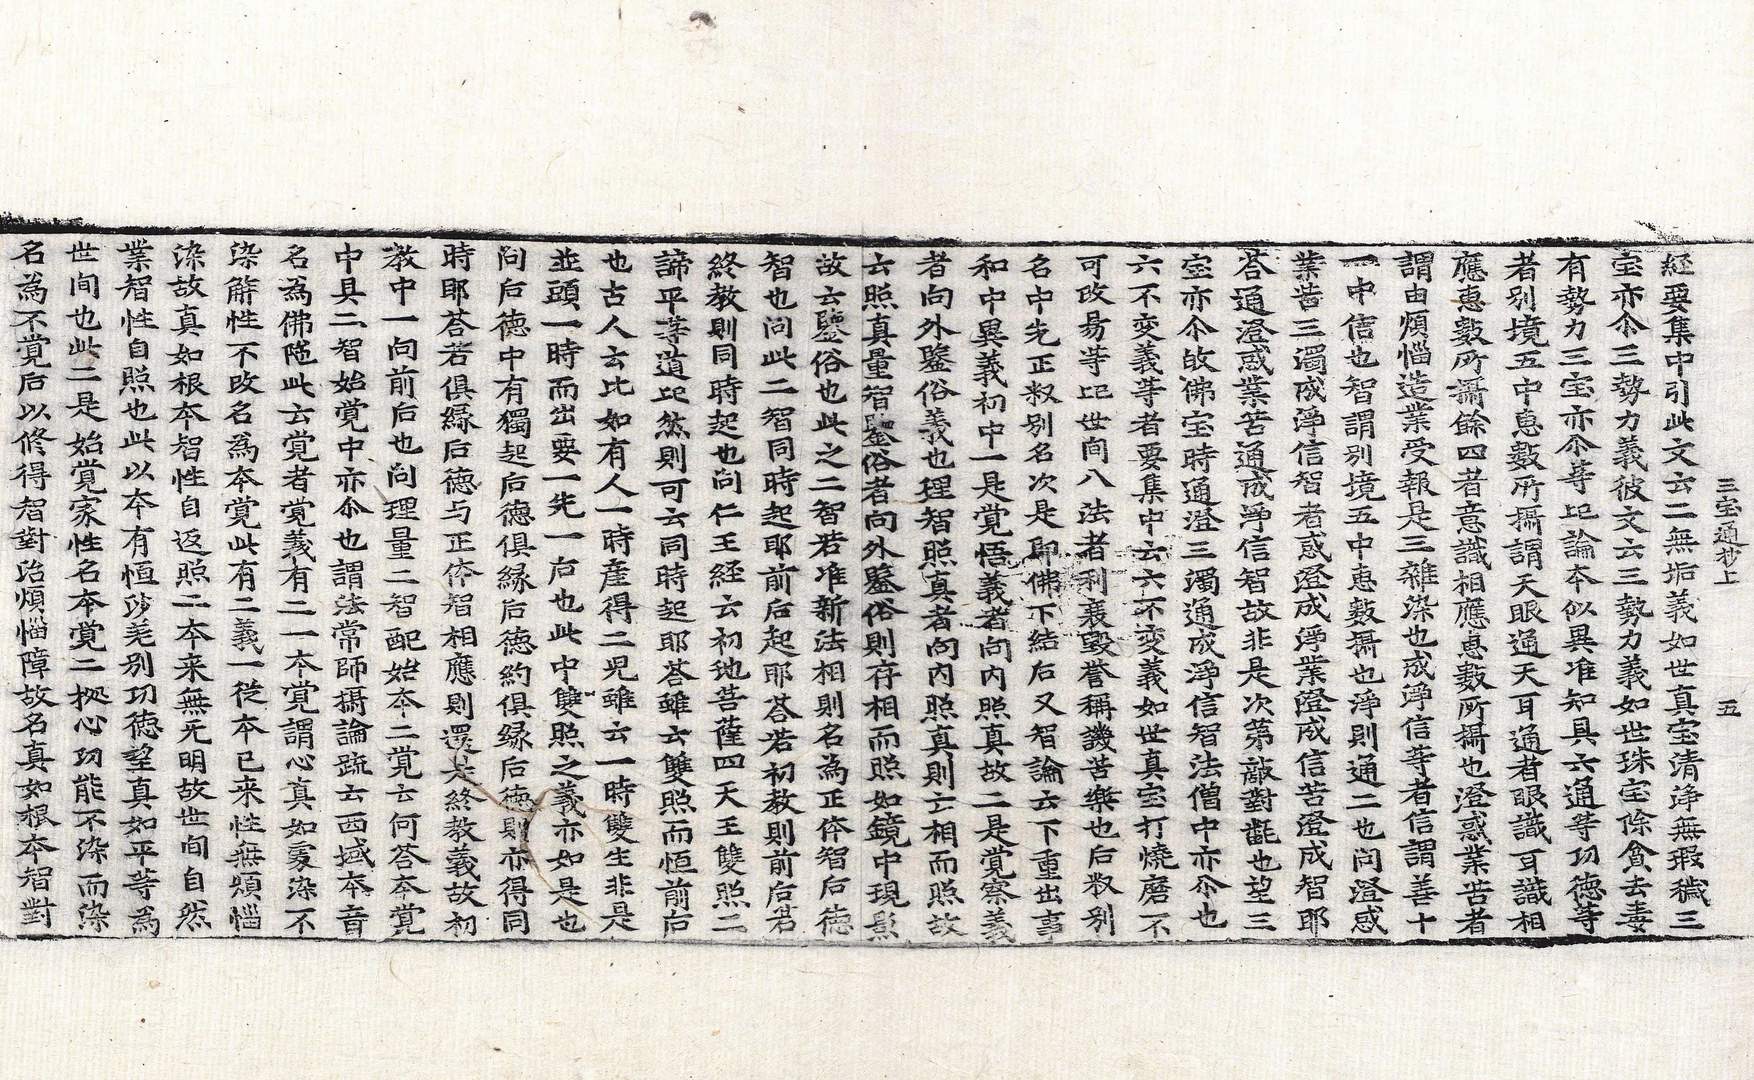 三宝通抄上　五
経要集中引此文云二無垢義如世真宝清浄無瑕穢三
宝亦尒三勢力義彼文云三勢力義如世珠宝除貪去毒
有勢力三宝亦尒等此論本似異准知具六通等功徳等
者别境五中恵數所攝謂天眼通天耳通者眼識耳識相
應恵數所攝餘四者意識相應恵數所攝也澄惑業苦者
謂由煩惱造業受報是三雜染也成淨信等者信謂善十
一中信也智謂别境五中恵數攝也淨則通二也问澄惑
業苦三濁成淨信智者惑澄成淨業澄成信苦澄成智耶
荅通澄惑業苦通成淨信智故非是次第敵對翻也望三
宝亦尒故佛宝時通澄三濁通成淨信智法僧中亦尒也
六不変義等者要集中云六不変義如世真宝打燒磨不
可改易等此世间八法者利衰毀誉稱譏苦樂也后叙别
名中先正叙别名次是即佛下結后又智論云下重出事
和中異義初中一是覚悟義者向内照真故二是覚察義
者向外鑒俗義也理智照真者向内照真則亡相而照故
云照真量智鑒俗者向外鑒俗則存相而照如鏡中現影
故云鑒俗也此之二智若准新法相則名為正体智后徳
智也问此二智同時起耶前后起耶荅若初教則前后若
終教則同時起也问仁王経云初地菩薩四天王雙照二
諦平等道此然則可云同時起耶荅雖云雙照而恒前后
也古人云比如有人一時産得二児雖云一時雙生非是
並頭一時而出要一先一后也此中雙照之義亦如是也
问后徳中有獨起后徳俱縁后徳約俱縁后徳則亦得同
時耶荅若俱縁后徳与正体智相應則還是終教義故初
教中一向前后也问理量二智配始本二覚云何荅本覚
中具二智始覚中亦尒也謂法常師攝論疏云西域本音
名為佛陁此云覚者覚義有二一本覚謂心真如雾染不
染解性不改名為本覚此有二義一從本已来性無煩惱
染故真如根本智性自返照二本来無无明故世间自然
業智性自照也此以本有恒沙羌别功徳望真如平等為
世间也此二是始覚家性名本覚二拠心功能不染而染
名為不覚后以修得智對治煩惱障故名真如根本智對